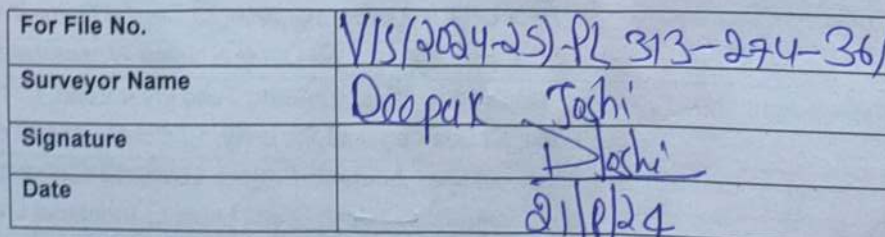 For File No. VIS(2024-25)-PL 313-274-361
Surveyor Name Deepak Joshi
Signature DJoshi
Date 21/8/24